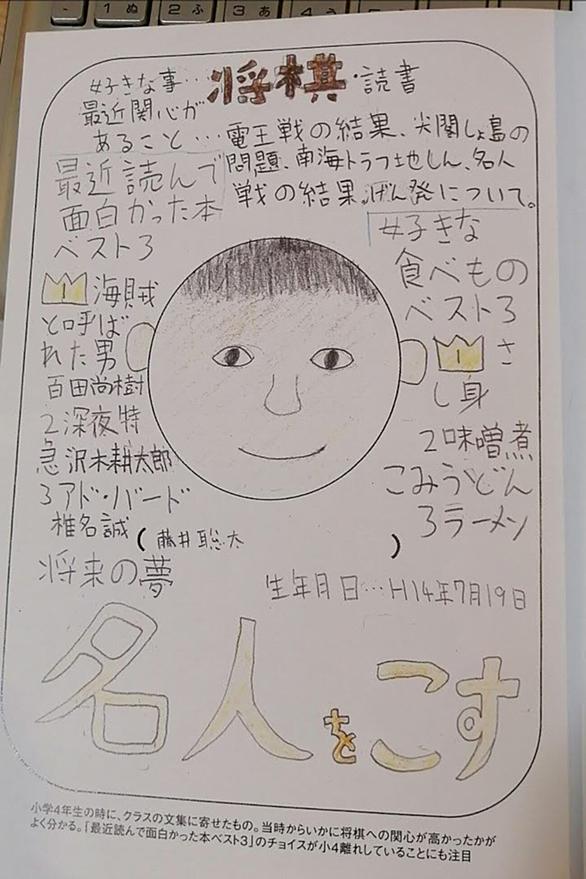 好きな事…将棋・読書
最近関心が
あること…電王戦の結果、尖閣しょ島の
問題、南海トラフ地しん、名人
戦の結果。げん発について。
最近読んで
面白かった本
ベスト3
1 海賊
と呼ば
れた男
百田尚樹
2深夜特
急 沢木耕太郎
3アド・バード
椎名誠
好きな
食べもの
ベスト3
1 さ
し身
2味噌煮
こみうどん
3ラーメン
(藤井聡太)
将来の夢
生年月日…H14年7月19日
名人をこす
小学4年生の時に、クラスの文集に寄せたもの。当時からいかに将棋への関心が高かったかが
よく分かる。「最近読んで面白かった本ベスト3」のチョイスが小4離れしていることにも注目